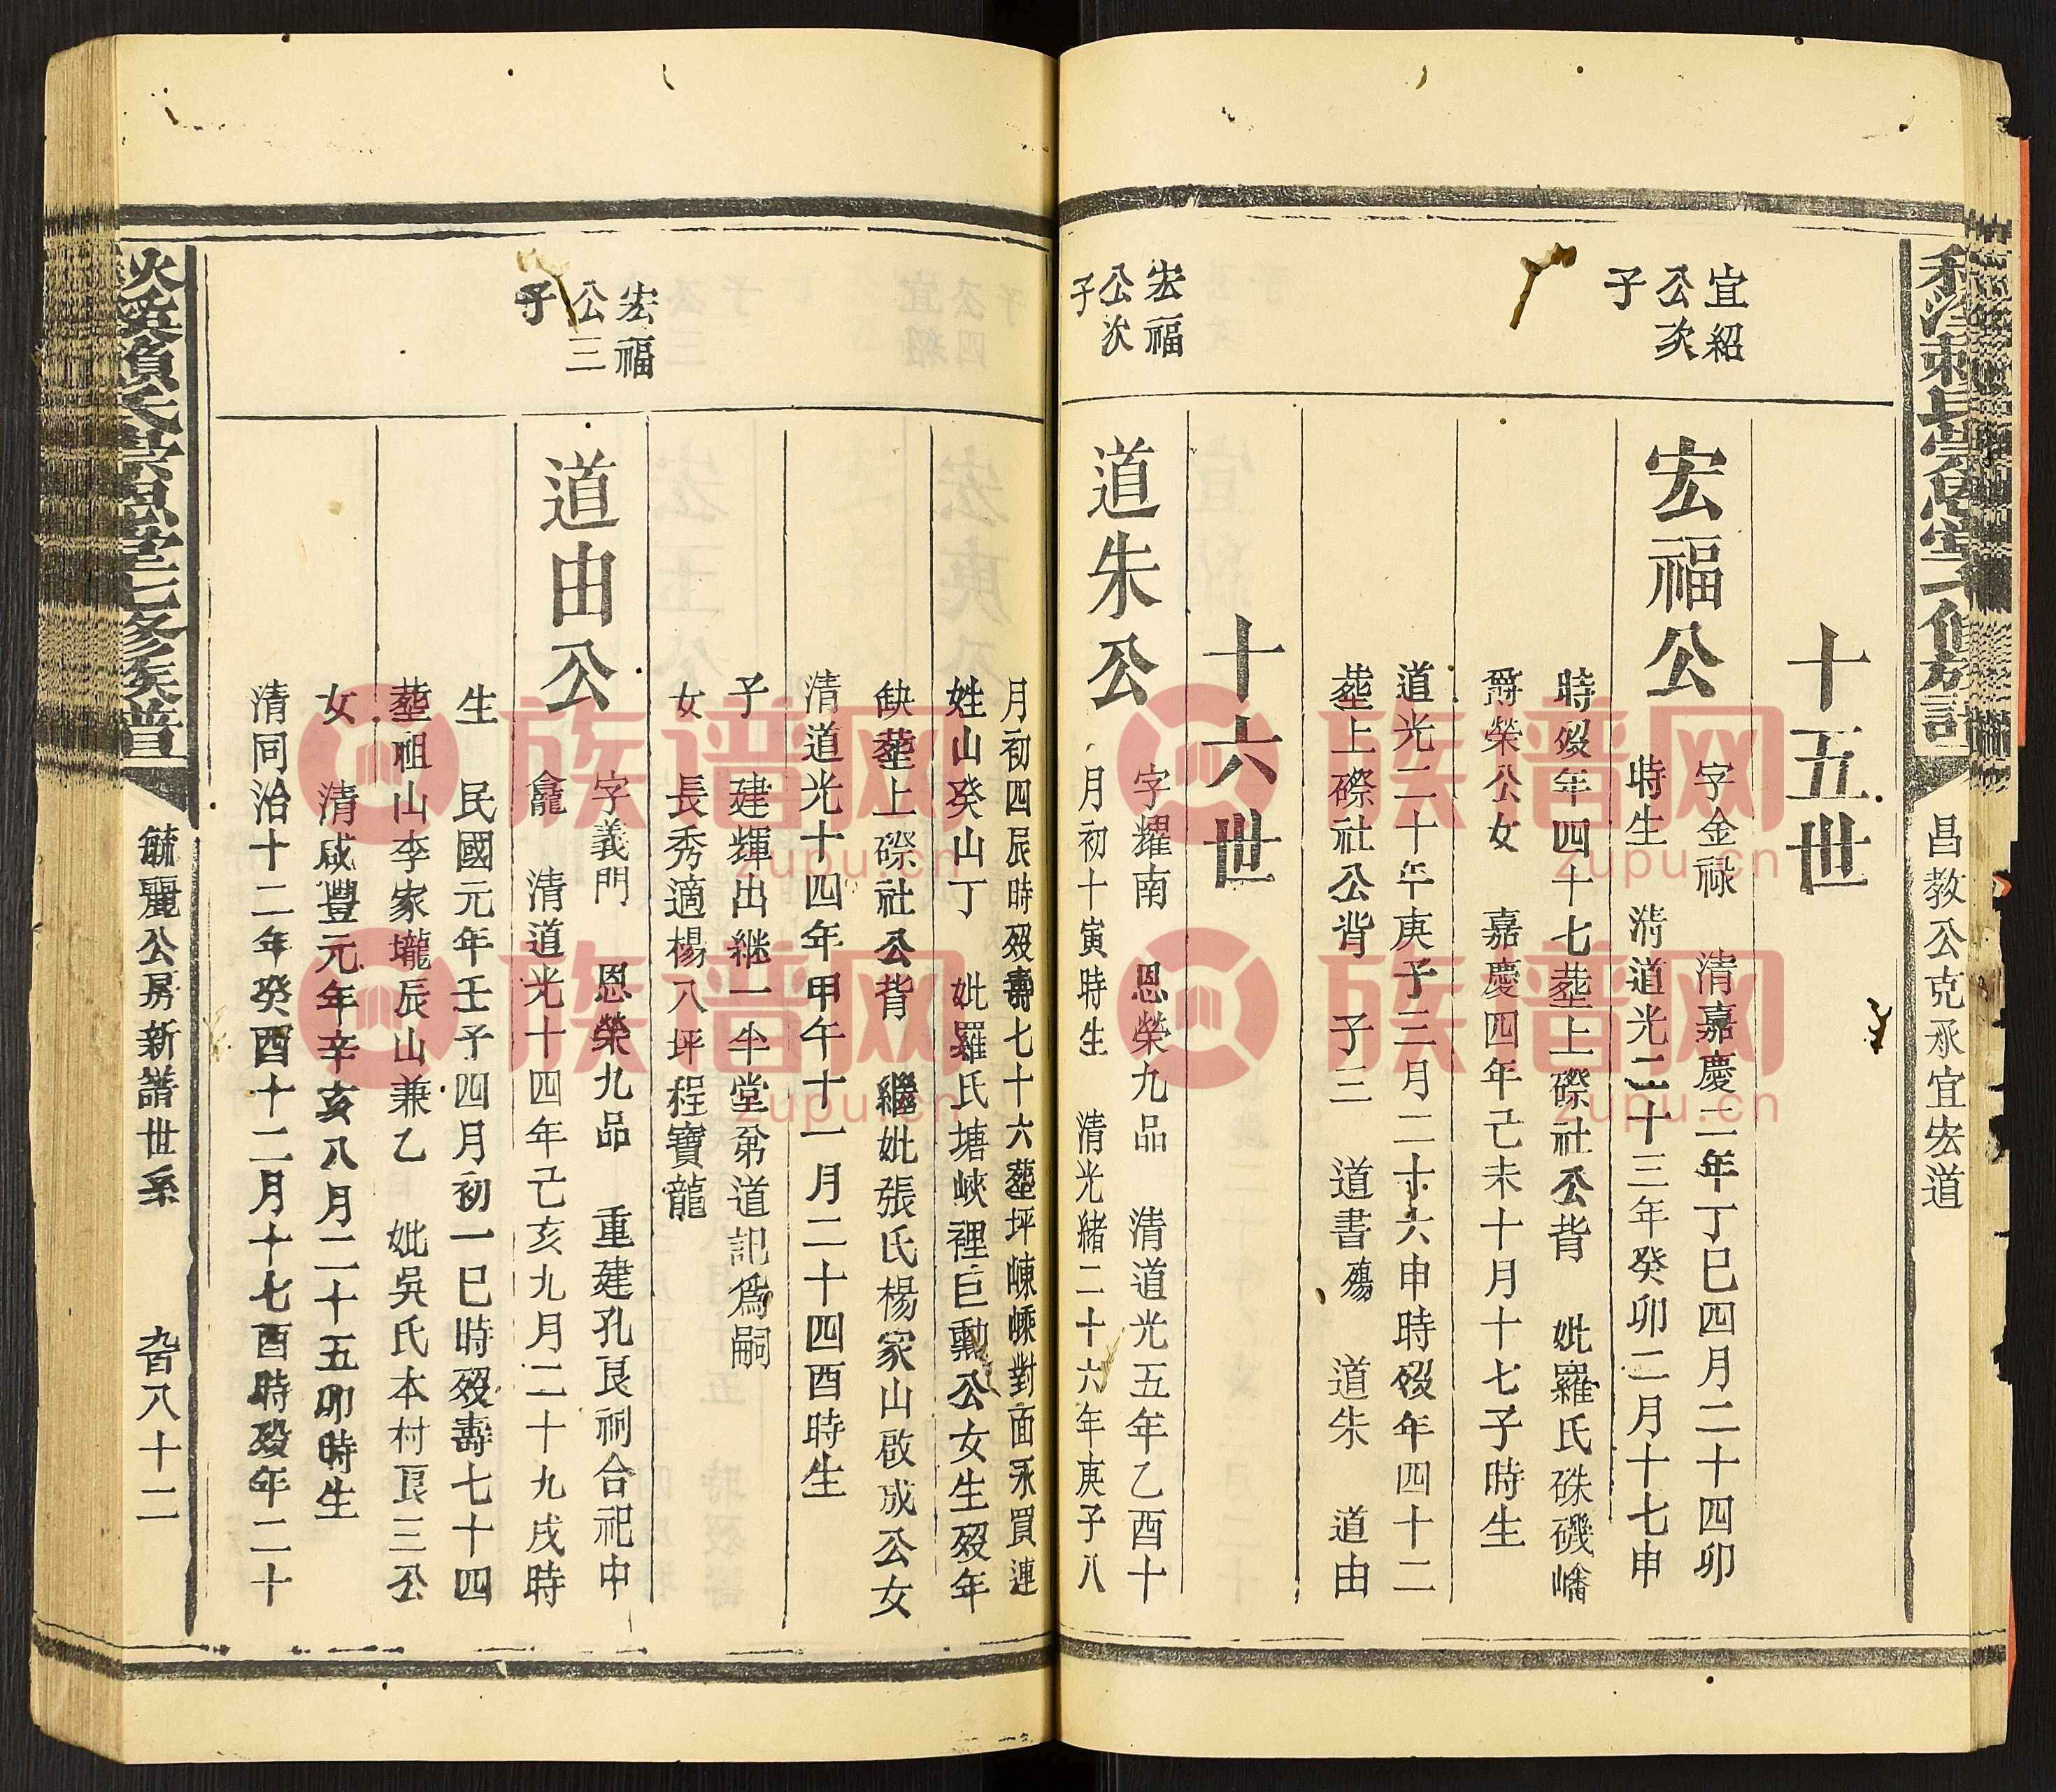 昌教公克承宜宏道
十五世
宜紹
公次
子
宏福公
字金禄 清嘉慶二年丁巳四月二十四卯
時生 清道光二十三年癸卯二月十七申
時殁年四十七塟上磜社公背 妣羅氏硃磯嶓
爵榮公女 嘉慶四年己未十月十七子時生
道光二十年庚子三月二十六申時殁年四十二
塟上磜社公背 子三 道書殤 道朱 道由
十六世
宏福
公次
子
道朱公
字耀南 恩榮九品 清道光五年乙酉十
月初十寅時生 清光緒二十六年庚子八
月初四辰時殁壽七十六塟坪崠嵊對面永買連
姓山癸山丁 妣羅氏塘峽裡巨勳公女生殁年
缺塟上磜社公背 繼妣張氏楊家山啟成公女
清道光十四年甲午十一月二十四酉時生
子 建輝出継一半堂弟道記為嗣
女 長秀適楊八坪程寶龍
宏福
公三
子
道由公
字義門 恩榮九品 重建孔良祠合祀中
龕 清道光十四年己亥九月二十九戌時
生 民國元年壬子四月初一巳時殁壽七十四
塟祖山李家壠辰山兼乙 妣吳氏本村良三公
女 清咸豐元年辛亥八月二十五卯時生
清同治十二年癸酉十二月十七酉時殁年二十
秋溪賴氏崇恩堂七修族譜
毓麗公房新譜世系
九百八十二
族谱网
zupu.cn
族谱网
zupu.cn
族谱网
zupu.cn
族谱网
zupu.cn